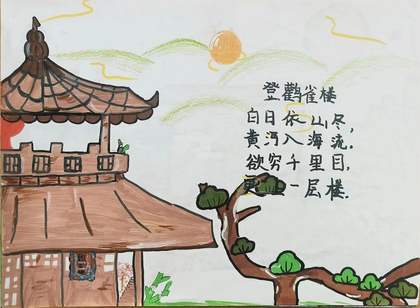 登鹳雀楼
白日依山尽,
黄河入海流.
欲穷千里目,
更上一层楼.